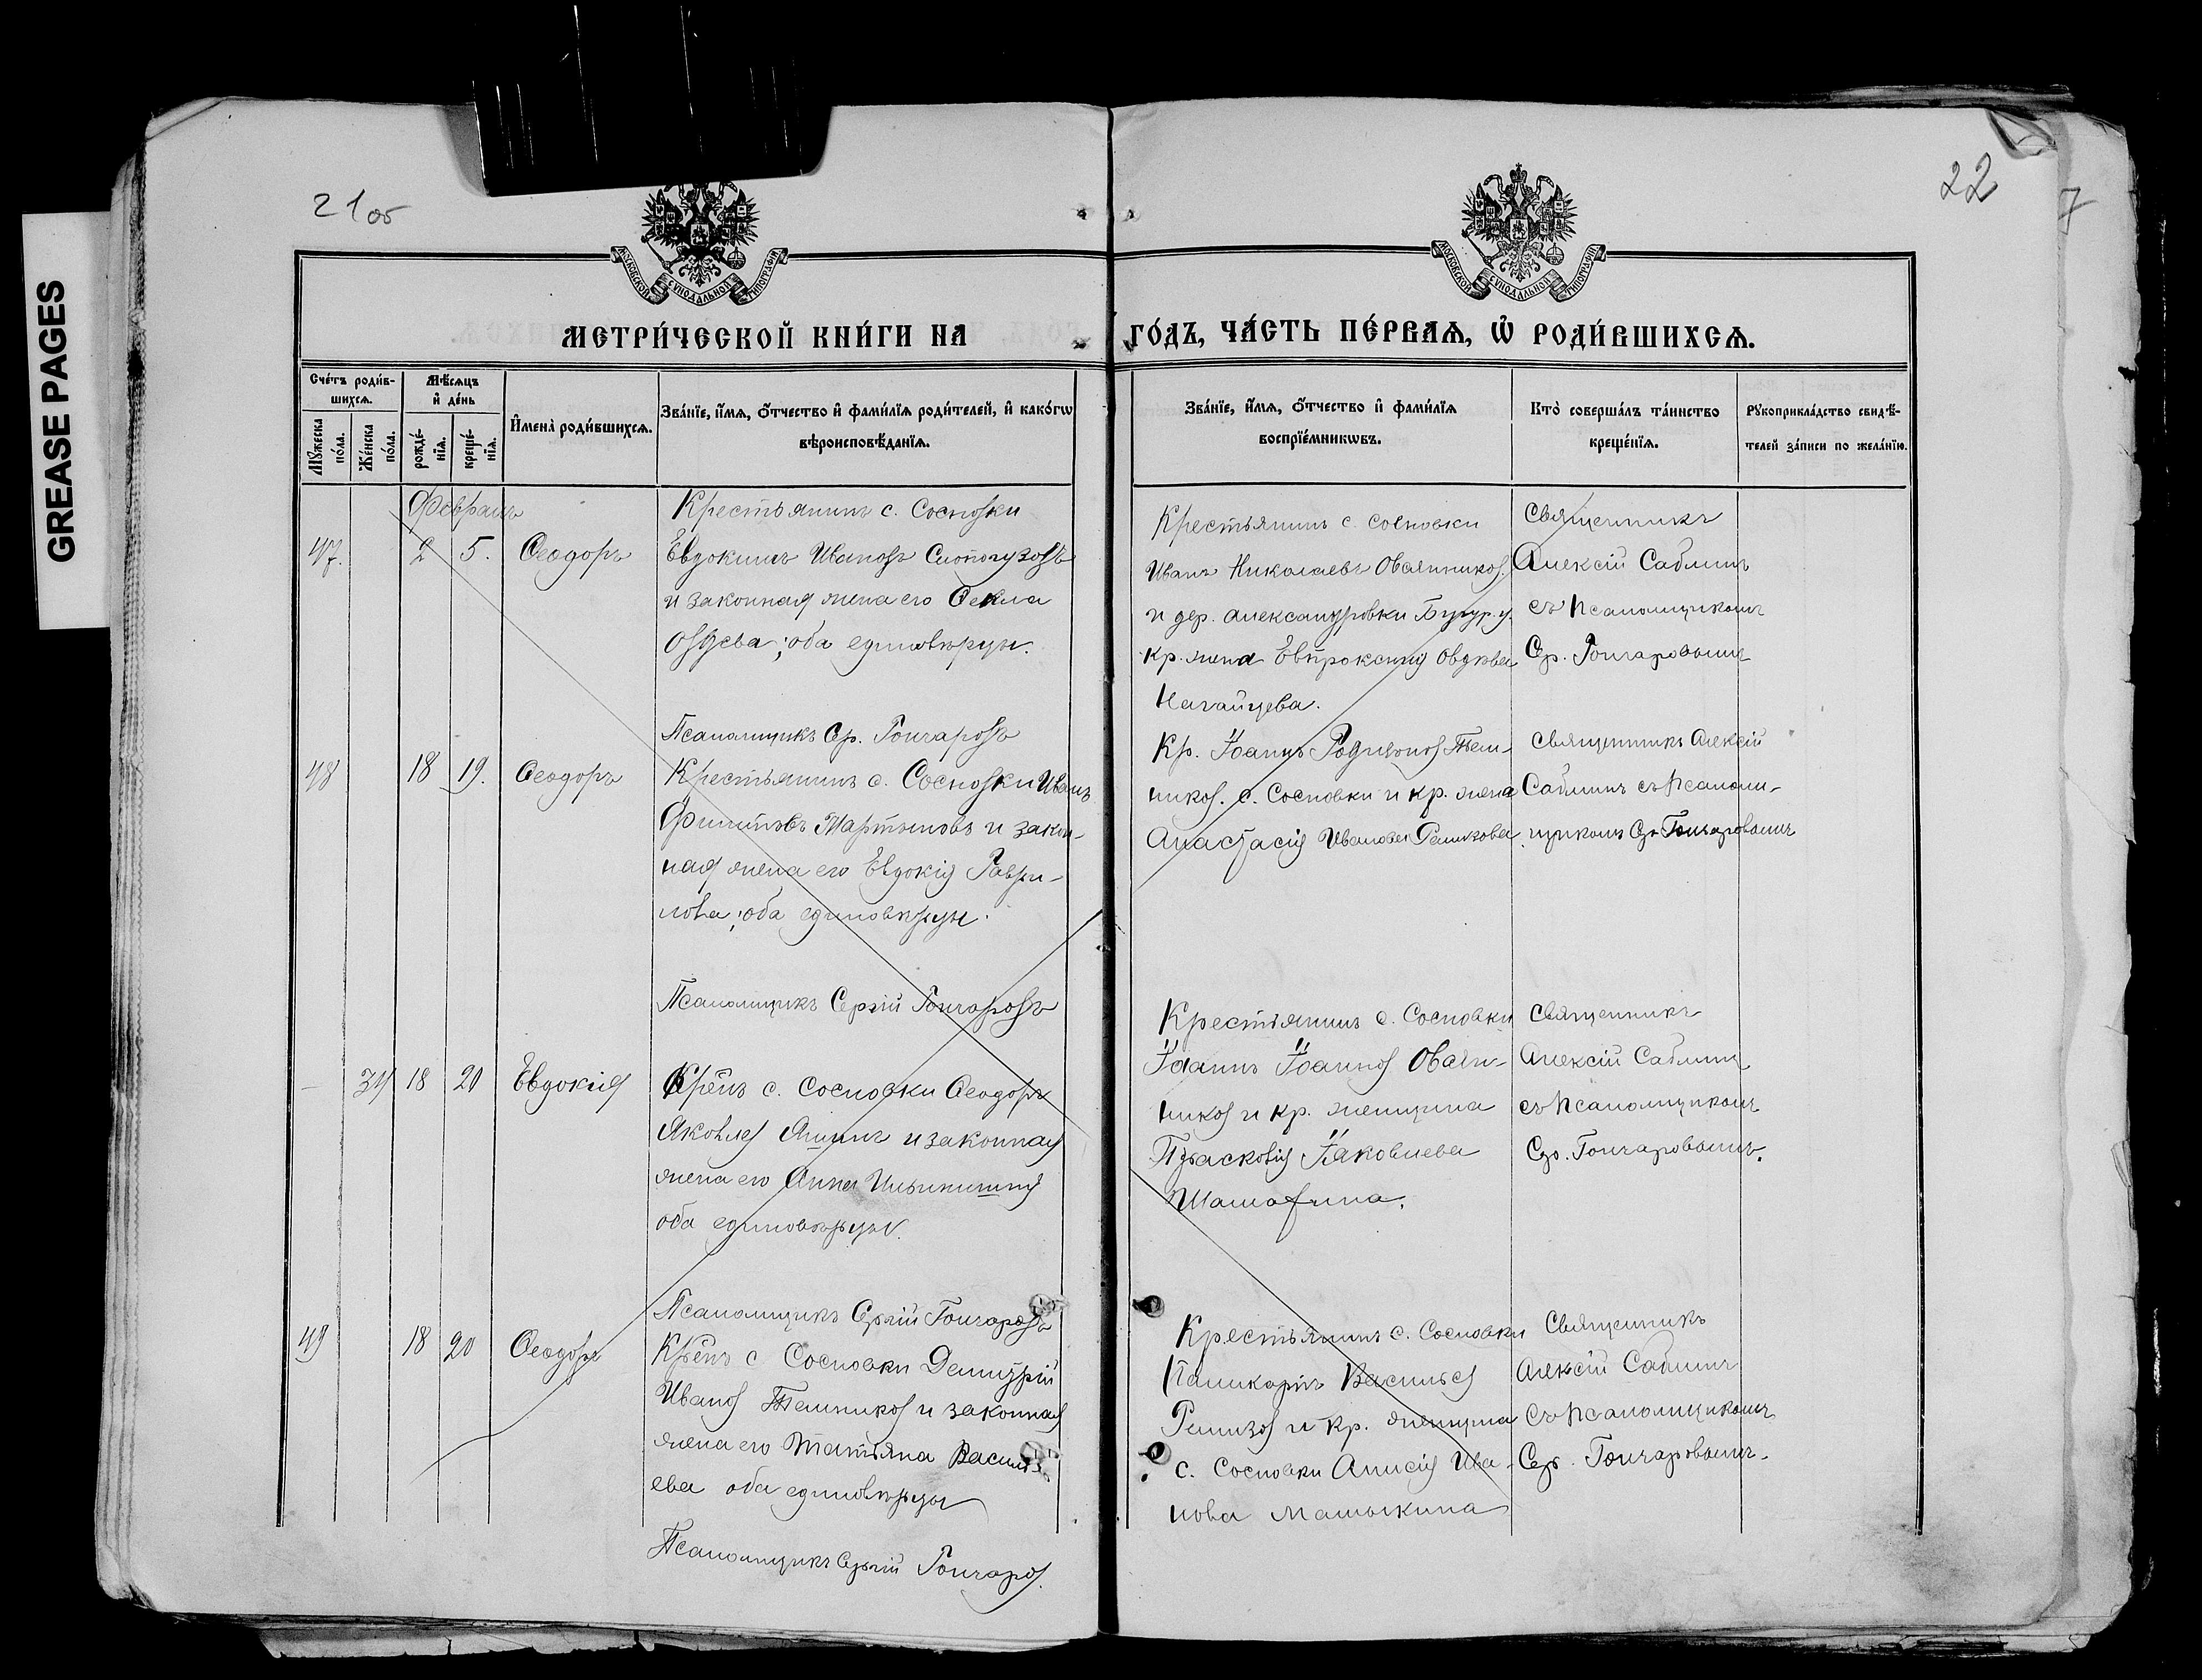 GREASE PAGES
21об
22
7
МОСКОВСКОЙ СѴНОДАЛЬНОЙ ТИПОГРАФІИ
МОСКОВСКОЙ СѴНОДАЛЬНОЙ ТИПОГРАФІИ
МЕТРИ́ЧЕСКОЙ КНИ́ГИ НА
ГО́ДЪ, ЧА́СТЬ ПЕ́РВАѦ, Ѽ РОДИ́ВШИХСѦ.
Сче́тъ роди́в-
шихсѧ.
Мꙋжеска
по́ла.
Же́нска
по́ла.
Мѣ́сѧцъ
и҆ де́нь
рожде́-
нїѧ.
креще́-
нїѧ.
И҆мена̀ роди́вшихсѧ.
Зва́нїе, и҆́мѧ, ѻ҆́тчество и҆ фами́лїѧ роди́телей, и҆ како́гѡ
вѣроисповѣ́данїѧ.
Зва́нїе, и҆́мѧ, ѻ҆́тчество и҆ фами́лїѧ
воспрїе́мникѡвъ.
Кто̀ соверша́лъ та́инство
креще́нїѧ.
Рꙋкоприкла́дство свидѣ́-
телей за́писи по жела́нїю.
Февраль
47.
2
5.
Ѳеодоръ
Крестьянинъ с. Сосновки
Евдокимъ Ивановъ
и законная жена его Ѳекла
оба единовѣрцы.
Псаломщикъ Ср. Гончаровъ
Крестьянинъ с. Сосновки
Иванъ Николаевъ Овчинников.
и дер. Александровки Бугур. у.
кр. жена Евпраксия
Нагайцева.
Священникъ
Алексій Саблинъ
съ псаломщикомъ
Ср. Гончаровымъ
48
18
19.
Ѳеодоръ
Крестьянинъ с. Сосновки Иванъ
Филиповъ Мартыновъ и закон-
ная жена его Евдокія Гаври-
лова; оба единовѣрцы.
Псаломщикъ Сергій Гончаровъ
Кр. Іоаннъ Родионов Тем-
ников. с. Сосновки и кр. жена
Анастасія Иванова
Священникъ Алексій
Саблинъ съ псалом-
щикомъ Ср. Гончаровымъ
-
34
18
20
Евдокія
Кр̃нъ с. Сосновки Ѳеодоръ
Яковлев Яшинъ и законная
жена его Анна
оба единовѣрцы.
Псаломщикъ Сергій Гончаровъ
Крестьянинъ с. Сосновки
Іоаннъ Іоаннов Овчин-
ников и кр. женщина
Парасковія Іаковлева
Священникъ
Алексій Саблинъ
съ псаломщикомъ
Ср. Гончаровымъ.
49
18
20
Ѳеодоръ
Кр̃нъ с Сосновки Димитрій
Иванов Темников и законная
жена его Татьяна Василь-
ева оба единовѣрцы
Псаломщикъ Сергій Гончаров.
Крестьянинъ с. Сосновки
Поликарпъ Васильев
Ремизов и кр. женщина
с. Сосновки Анисія Ива-
нова Мамыкина
Священникъ
Алексій Саблинъ
съ псаломщикомъ
Сер. Гончаровымъ.